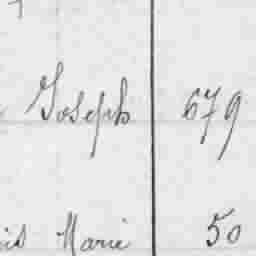 Joseph 679
Marie 50